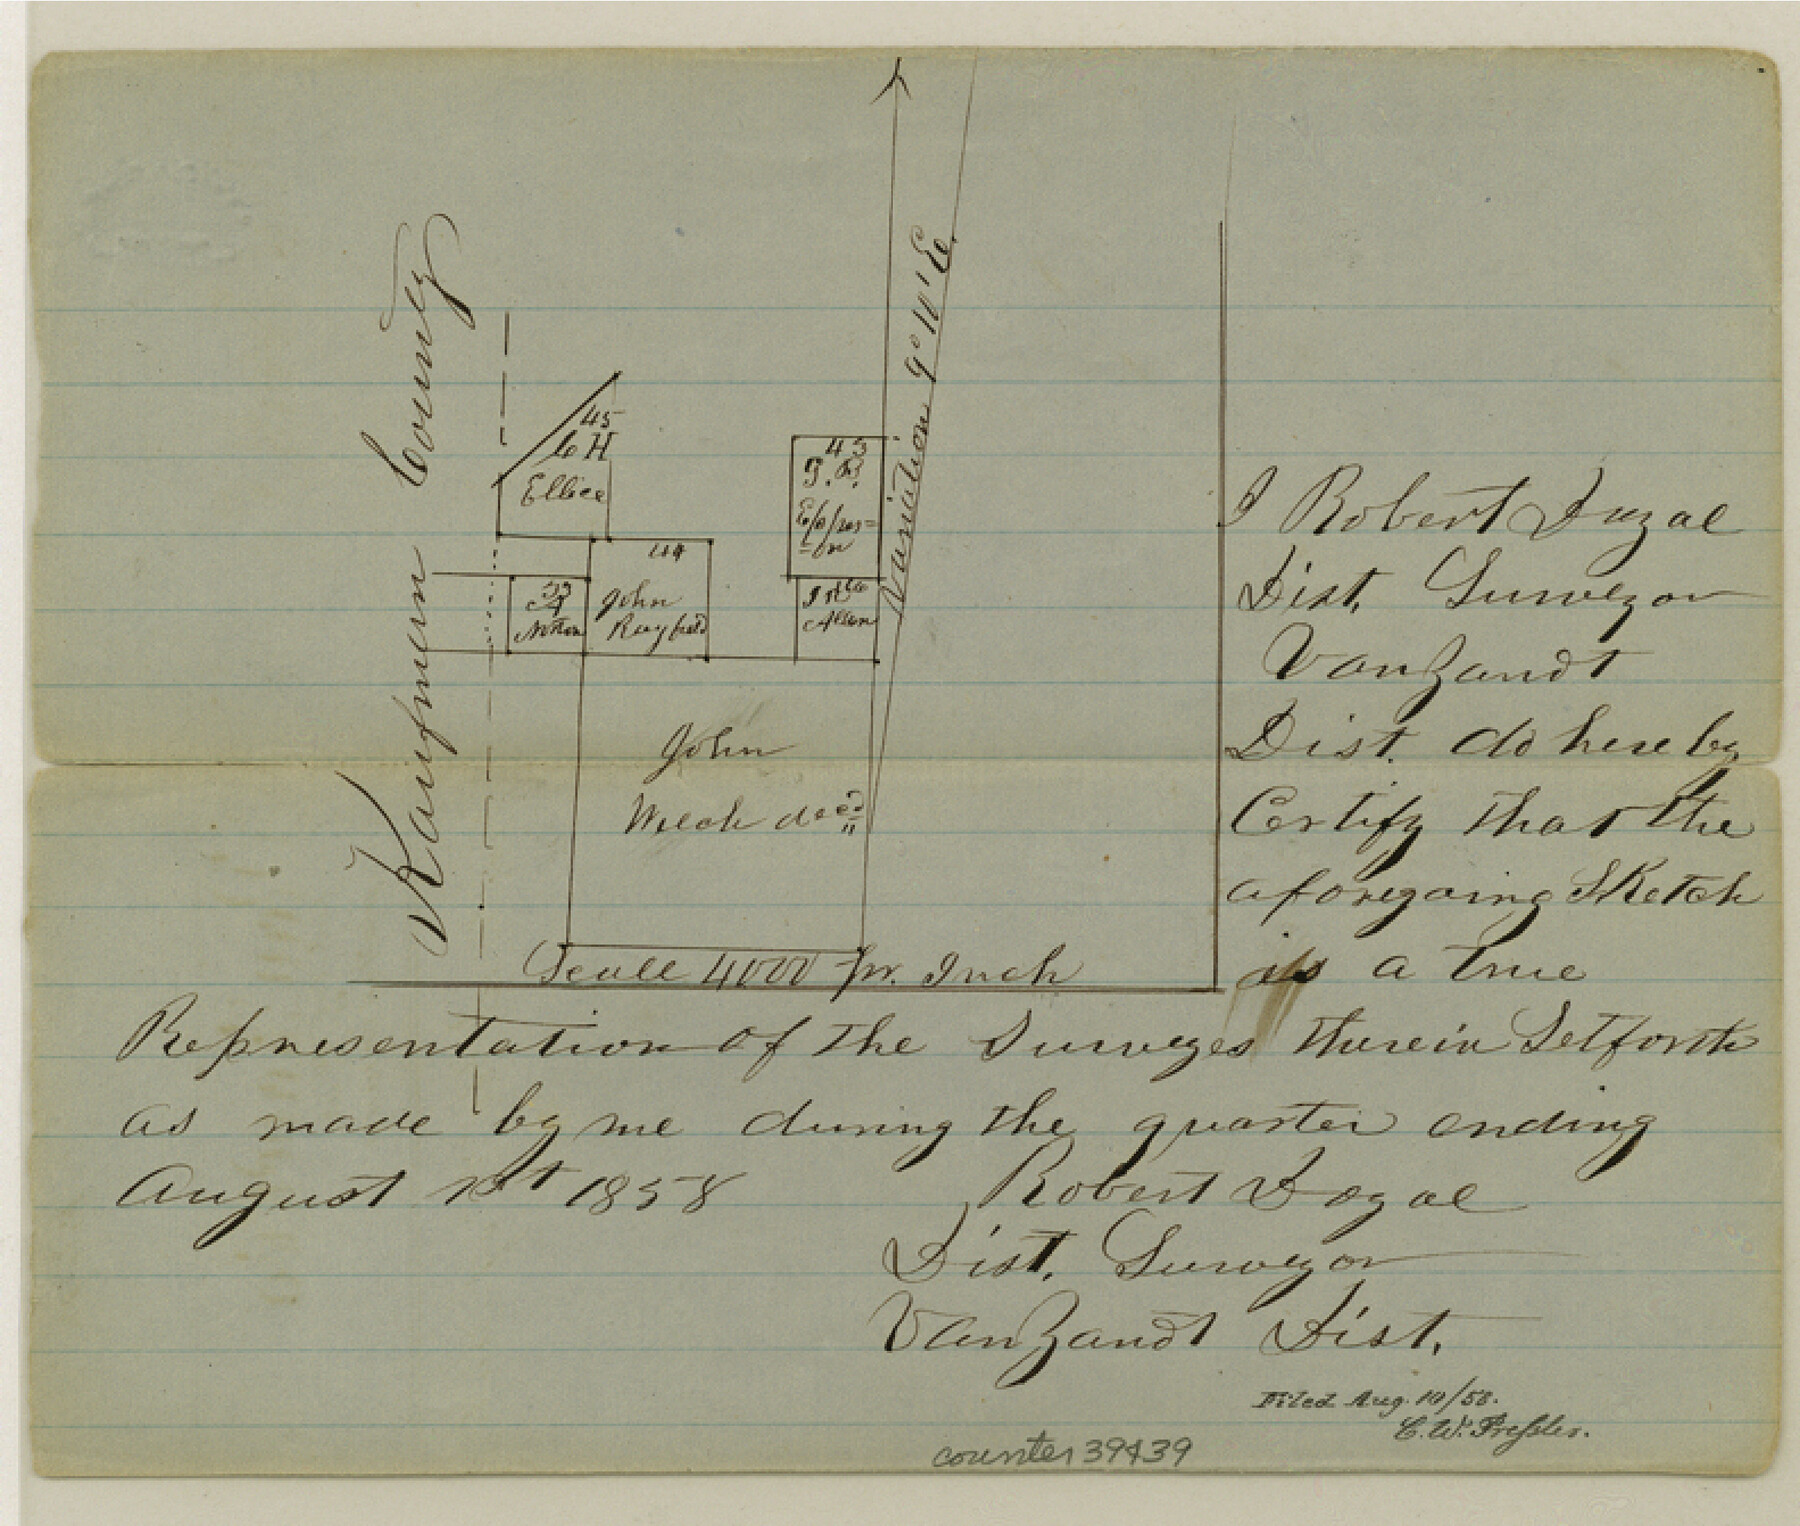 Kaufman County
45
C H
Ellice
44
John
Rayfield
43
J. B.
Variation 9° 10' E.
Allen
John
Welch decd
Scale 4000 pr. Inch
I Robert Duzal
Dist. Surveyor
VanZandt
Dist. do here by
Certify that the
aforegoing Sketch
is a true
Representation of the Surveyes therein Setforth
as made by me during the quarter ending
August 1st 1858
Robert Dozal
Dist. Surveyor
VanZandt Dist.
Filed Aug. 10/58.
C. W. Pressler.
counter 39439